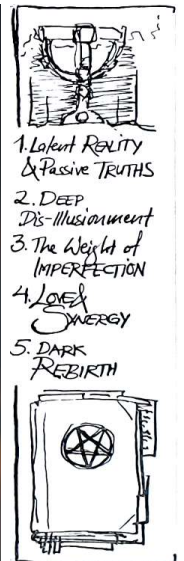 1. Latent REALITY
& Passive TRUTHS
2. DEEP
Dis-Illusionment
3. The Weight of
IMPERFECTION
4. LOVE &
SYNERGY
5. DARK
REBIRTH